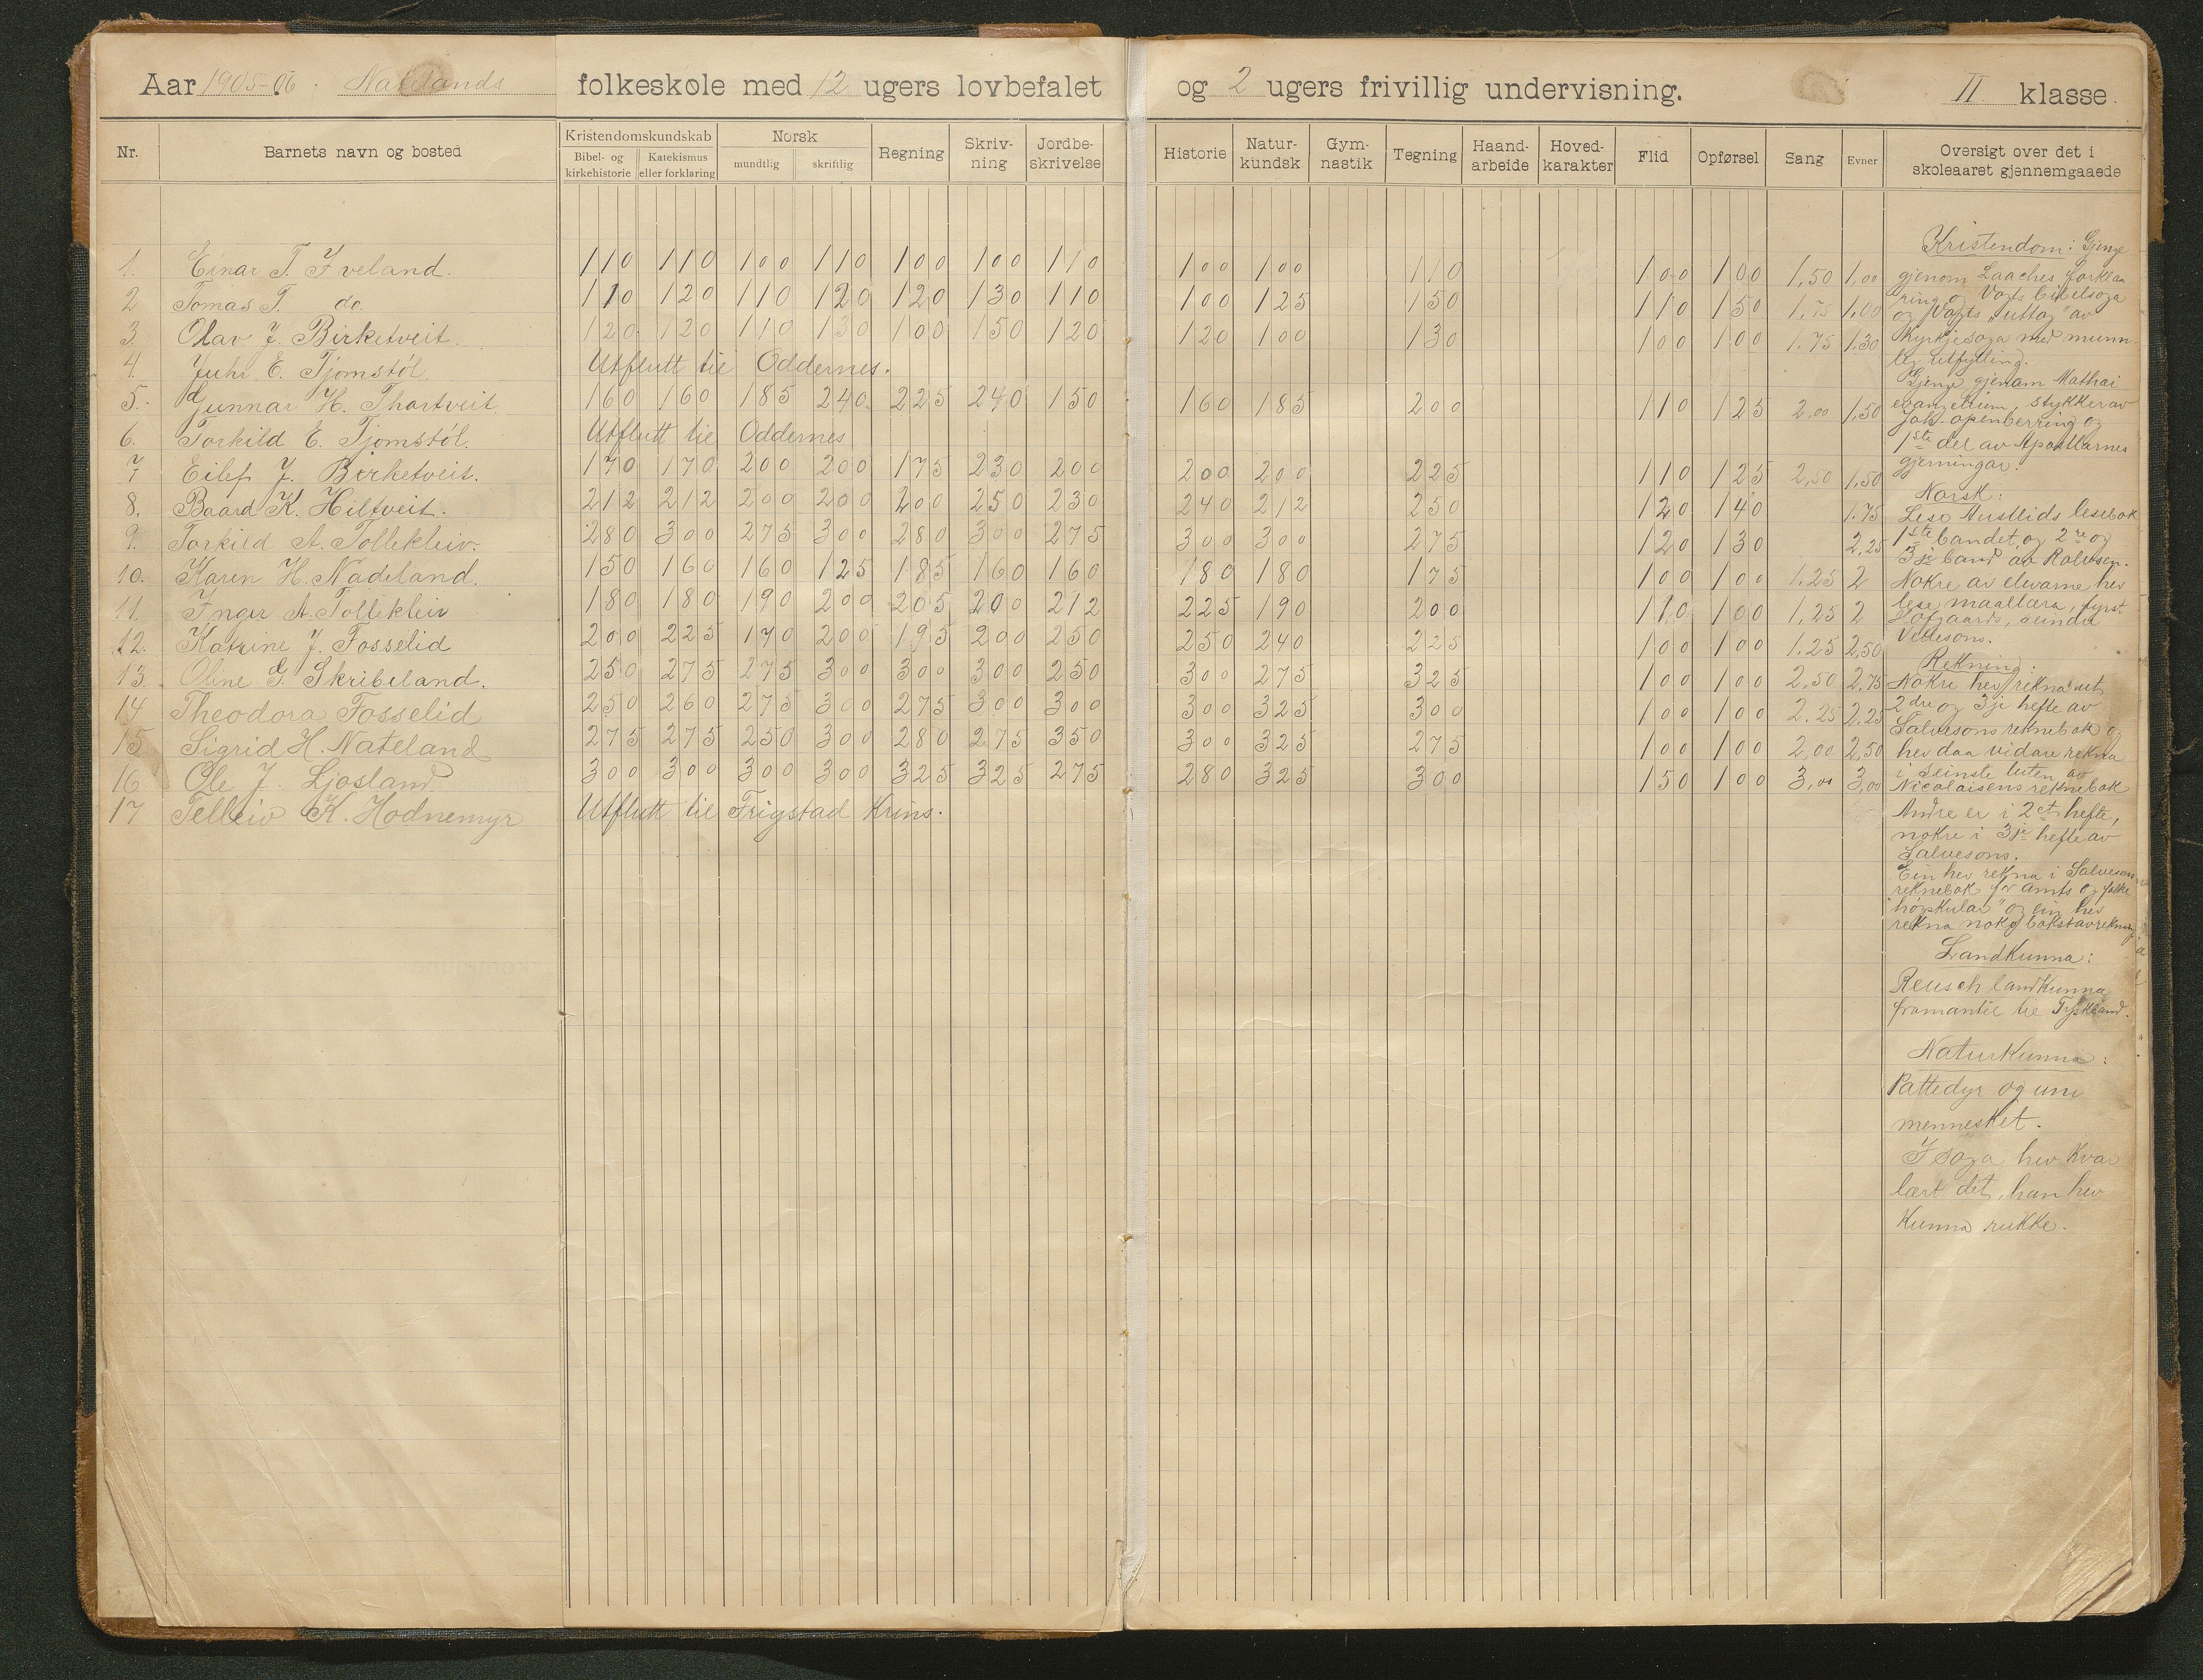 Aar 1905-06. Natelands folkeskole med 12 ugers lovbefalet og 2 ugers frivillig undervisning. II klasse.
Nr. Barnets navn og bosted Kristendomskundskab Bibel- og kirkehistorie Katekismus eller forklaring Norsk mundtlig skriftlig Regning Skriv-ning Jordbe-skrivelse Historie Natur-kundsk Gym-nastik Tegning Haand-arbeide Hoved-karakter Flid Opførsel Sang Evner Oversigt over det i skoleaaret gjennemgaaede
1. Einar T. Iveland. 110 110 100 110 100 100 110 100 100 110 100 100 1,50 1,00
2 Tomas T. do. 110 120 110 120 120 130 110 100 125 150 110 150 1,75 1,00
3. Olav J. Birketveit. 120 120 110 130 100 150 120 120 100 130 100 100 1.75 1.30
4. Juhr E. Tjomstöl Utflutt til Oddernes.
5. Gunnar H. Thortveit. 160 160 185 240 225 240 150 160 185 200 110 125 2,00 1,50
6. Torkild E. Tjomstöl. Utflutt til Oddernes
7 Eilef J. Birketveit. 170 170 200 200 175 230 200 200 200 225 110 125 2,50 1,50
8. Baard K. Hiltveit. 212 212 200 200 200 250 230 240 212 250 120 140 1.75
9. Torkild A. Tollekleiv. 280 300 275 300 280 300 275 300 300 275 120 130 2,25
10. Karen H. Nadeland. 150 160 160 125 185 160 160 180 180 175 100 100 1.25 2
11. Inger A. Tollekleiv 180 180 190 200 205 200 212 225 190 200 110 100 1,25 2
12. Katrine J. Fosselid 200 225 170 200 195 200 250 250 240 225 100 100 1.25 2,50
13. Oline G. Skribeland. 250 275 275 300 300 300 250 300 275 325 100 100 2,50 2,75
14 Theodora Fosselid 250 260 275 300 275 300 300 300 325 300 100 100 2,25 2,25
15 Sigrid H. Nateland 275 275 250 300 280 275 350 300 325 275 100 100 2,00 2,50
16 Ole J. Ljosland 300 300 300 300 325 325 275 280 325 300 150 100 3,00 3,00
17 Telleiv K. Hodnemyr Utflutt til Frigstad Krins.
Kristendom: Gjenge
gjenom Laaches forkla
ring og Vogts bibelsoga
og Vogts "uttog" av
Kyrkjesoga med munn
leg utfylling.
Gjenge gjenam Mathæi
evangelium, stykker av
Joh. openberring og
1ste del av Apostlarnes
gjerningar.
Norsk:
Lese Austlids lesebok
1ste bandet og 2re og
3je band av Rolvsen.
Nokre av elevarne hev
lese maallæra, fyrst
Hofgaards, seinder
Vidisons.
Rekning:
Nokre hev rekna ut
2dre og 3je hefte av
Salvesons reknebok og
hev daa vidare rekna
i seinste luten av
Nicolaisens reknebok
Andre er i 2et hefte,
nokre i 3je hefte av
Salvesons.
Ein hev rekna i Salvesons
reknebok for amts og folke
høgskular" og ein hev
rekna noko bokstavrekning
Landkunna:
Reusch landkunna
framantil til Tyskland.
Naturkunna:
Pattedyr og um
mennesket.
I soga hev kvar
lært det, han hev
kunna rukke.